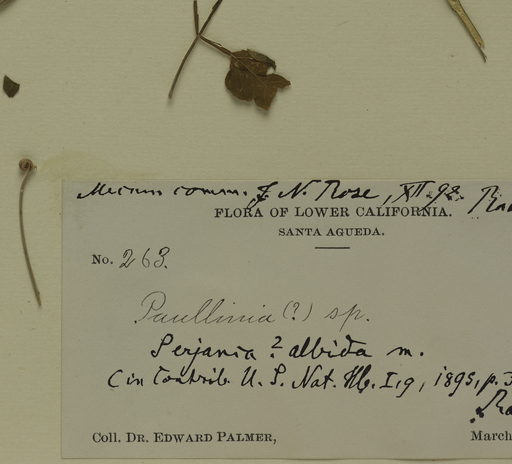 comm. J. N. Rose, XII. 92.
FLORA OF LOWER CALIFORNIA.
SANTA AGUEDA.
No. 263.
Paullinia (?) sp.
Serjania ? albida m.
(in Contrib. U. S. Nat. Hb. I, 9, 1895, p. 3
Coll. DR. EDWARD PALMER, March